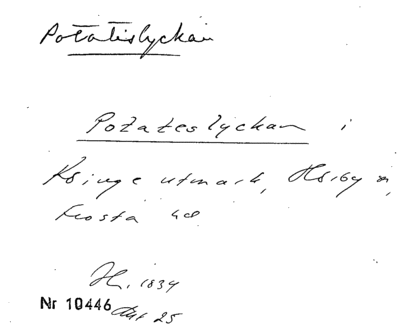 Potatislyckan
Potateslyckan i
Ksinge utmark, Hsiby sn,
Frosta hd
H. 1834
Nr 10446 Akt 25